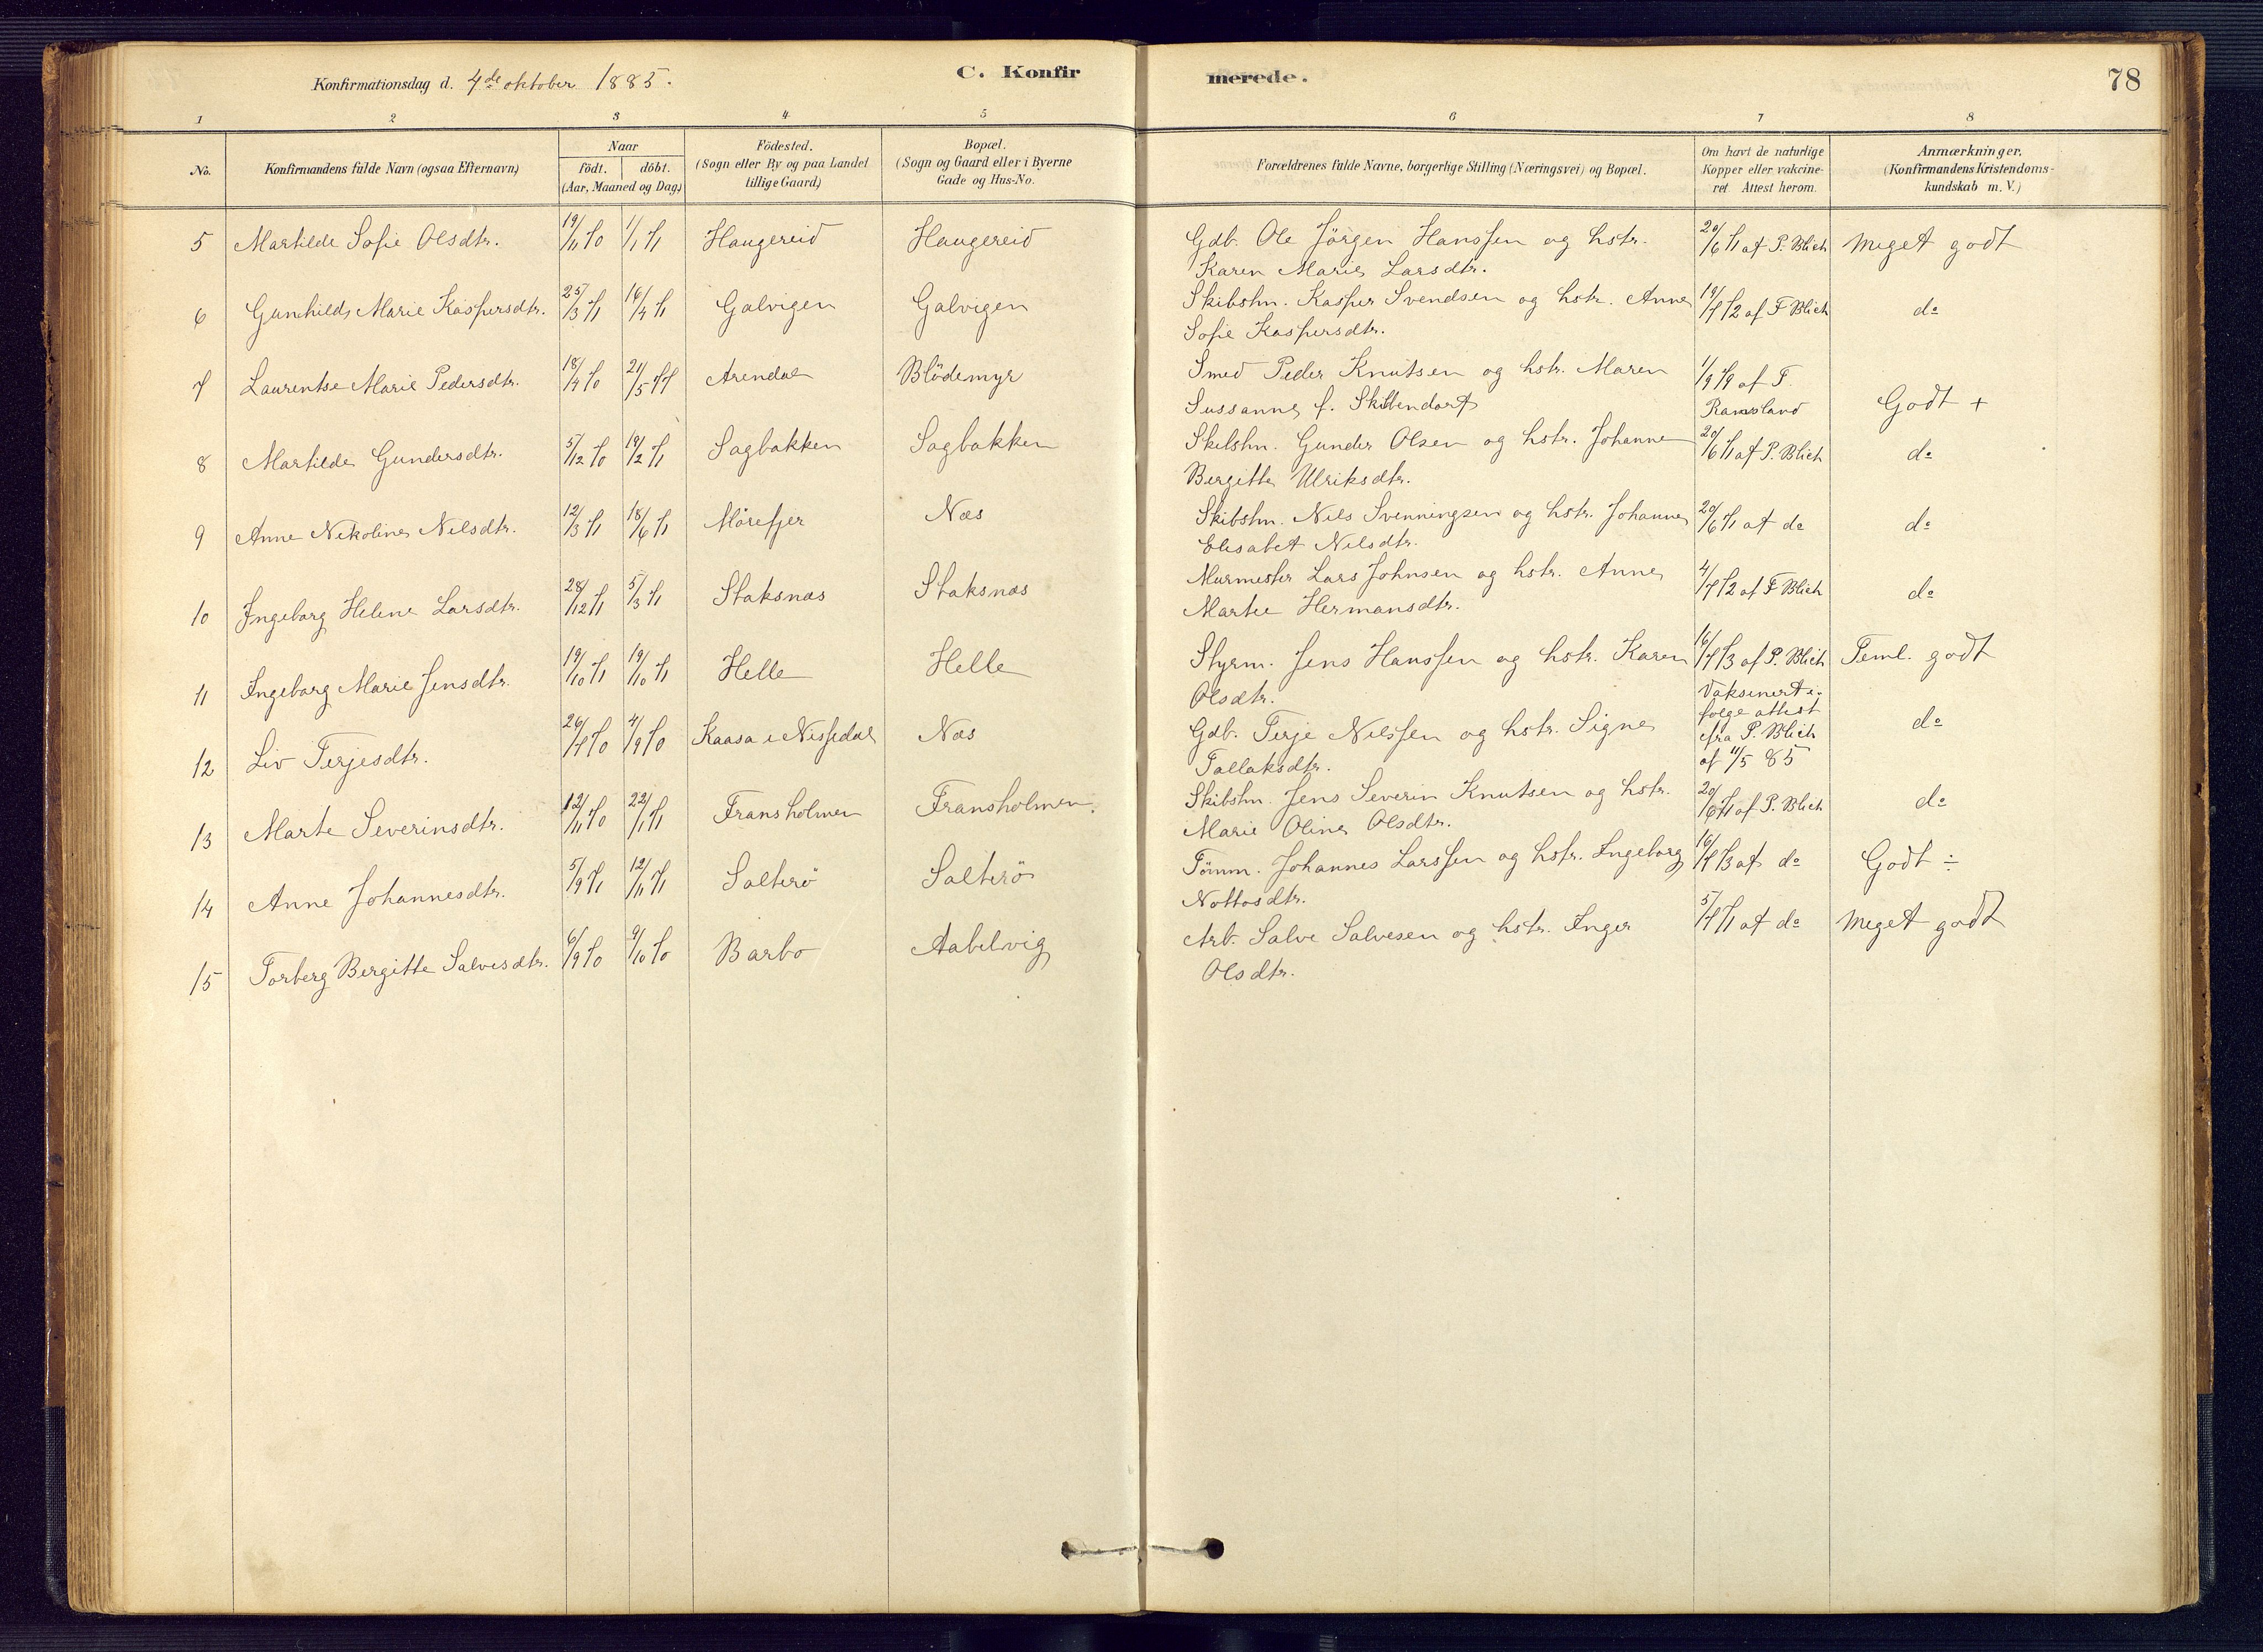 Konfirmationsdag d. 4de oktober 1885.
C. Konfirmerede.
78
1 2 3 4 5 6 7 8
No.
Konfirmandens fulde Navn (ogsaa Efternavn)
Naar
födt. döbt.
(Aar, Maaned og Dag)
Födested.
(Sogn eller By og paa Landet
tillige Gaard)
Bopæl.
(Sogn og Gaard eller i Byerne
Gade og Hus-No.
Forældrenes fulde Navne, borgerlige Stilling (Næringsvei) og Bopæl.
Om havt de naturlige
Kopper eller vakcine-
ret. Attest herom.
Anmærkninger.
(Konfirmandens Kristendoms-
kundskab m. V.)
5 Martilde Sofie Olsdtr. 19/11 70 1/1 71 Haugereid Haugereid Gdb. Ole Jörgen Hanssen og hstr. 20/6 71 af P. Blich Meget godt
Karen Marie Larsdtr.
6 Gunhild Marie Kaspersdtr. 25/3 71 16/4 71 Galvigen Galvigen Skibshm. Kasper Svendsen og hstr. Anne 19/7 72 af F Blich do
Sofie Kaspersdtr.
7 Laurentse Marie Pedersdtr. 18/4 70 21/5 77 Arendal Blödemyr Smed Peder Knutsen og hstr. Maren 1/9 79 af F.
Sussanne f. Skiltendorf Ramsland Godt +
8 Martilde Gundersdtr. 5/12 70 19/2 71 Sagbakken Sagbakken Skibshm. Gunder Olsen og hstr. Johanne 20/6 71 af P. Blich do
Bergitte Ulriksdtr.
9 Anne Nikoline Nilsdtr. 12/3 71 18/6 71 Mörefjer Næs Skibshm. Nils Svenningsen og hstr. Johanne 20/6 71 af do do
Elisabet Nilsdtr.
10 Ingeborg Helene Larsdtr. 28/12 71 5/3 71 Staksnæs Staksnæs Murmester Lars Johnsen og hstr. Anne 4/7 72 af F Blich do
Marte Hermansdtr.
11 Ingeborg Marie Jensdtr. 19/10 71 19/10 71 Helle Helle Styrm. Jens Hanssen og hstr. Karen 16/7 73 af P. Blich Teml. godt
Olsdtr.
12 Liv Terjesdtr. 26/7 70 4/9 70 Kaasa i Nissedal Næs Gdb. Terje Nilssen og hstr. Signe Vaksinert i-
følge attest
Tallaksdtr. fra P. Blich do
af 11/5 85
13 Marte Severinsdtr. 12/11 70 22/1 71 Fransholmen Fransholmen. Skibshm. Jens Severin Knutsen og hstr. 20/6 71 af P. Blich do
Marie Oline Olsdtr.
14 Anne Johannesdtr. 5/9 71 12/11 71 Salterö Salterö Tömm. Johannes Larssen og hstr. Ingeborg 16/7 73 af do Godt ÷
Nottosdtr.
15 Torberg Bergitte Salvesdtr. 6/9 70 9/10 70 Barbo Aabelvig Arb. Salve Salvesen og hstr. Inger 5/7 71 af do Meget godt
Olsdtr.